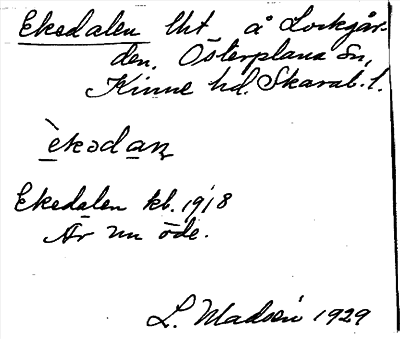 Ekedalen lht å Lockgår-
den, Österplana sn,
Kinne hd. Skarab. l.
èkədaɳ
Ekedalen kb. 1918
Är nu öde.
L. Madsén 1929